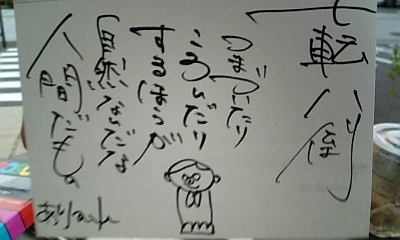 七転八倒
つまづいたり
ころんだり
するほうが
自然なんだな
人間だもの